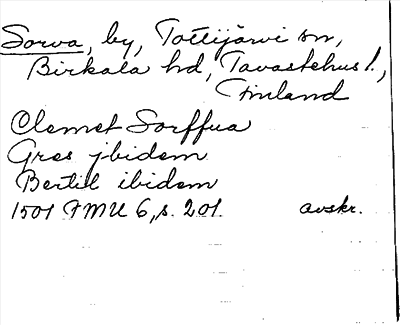 Sorva, by, Tottijärvi sn,
Birkala hd, Tavastehus l.,
Finland
Clemet Sorffua
Gres jbidem
Bertil ibidem
1501 FMU 6, s. 201. avskr.